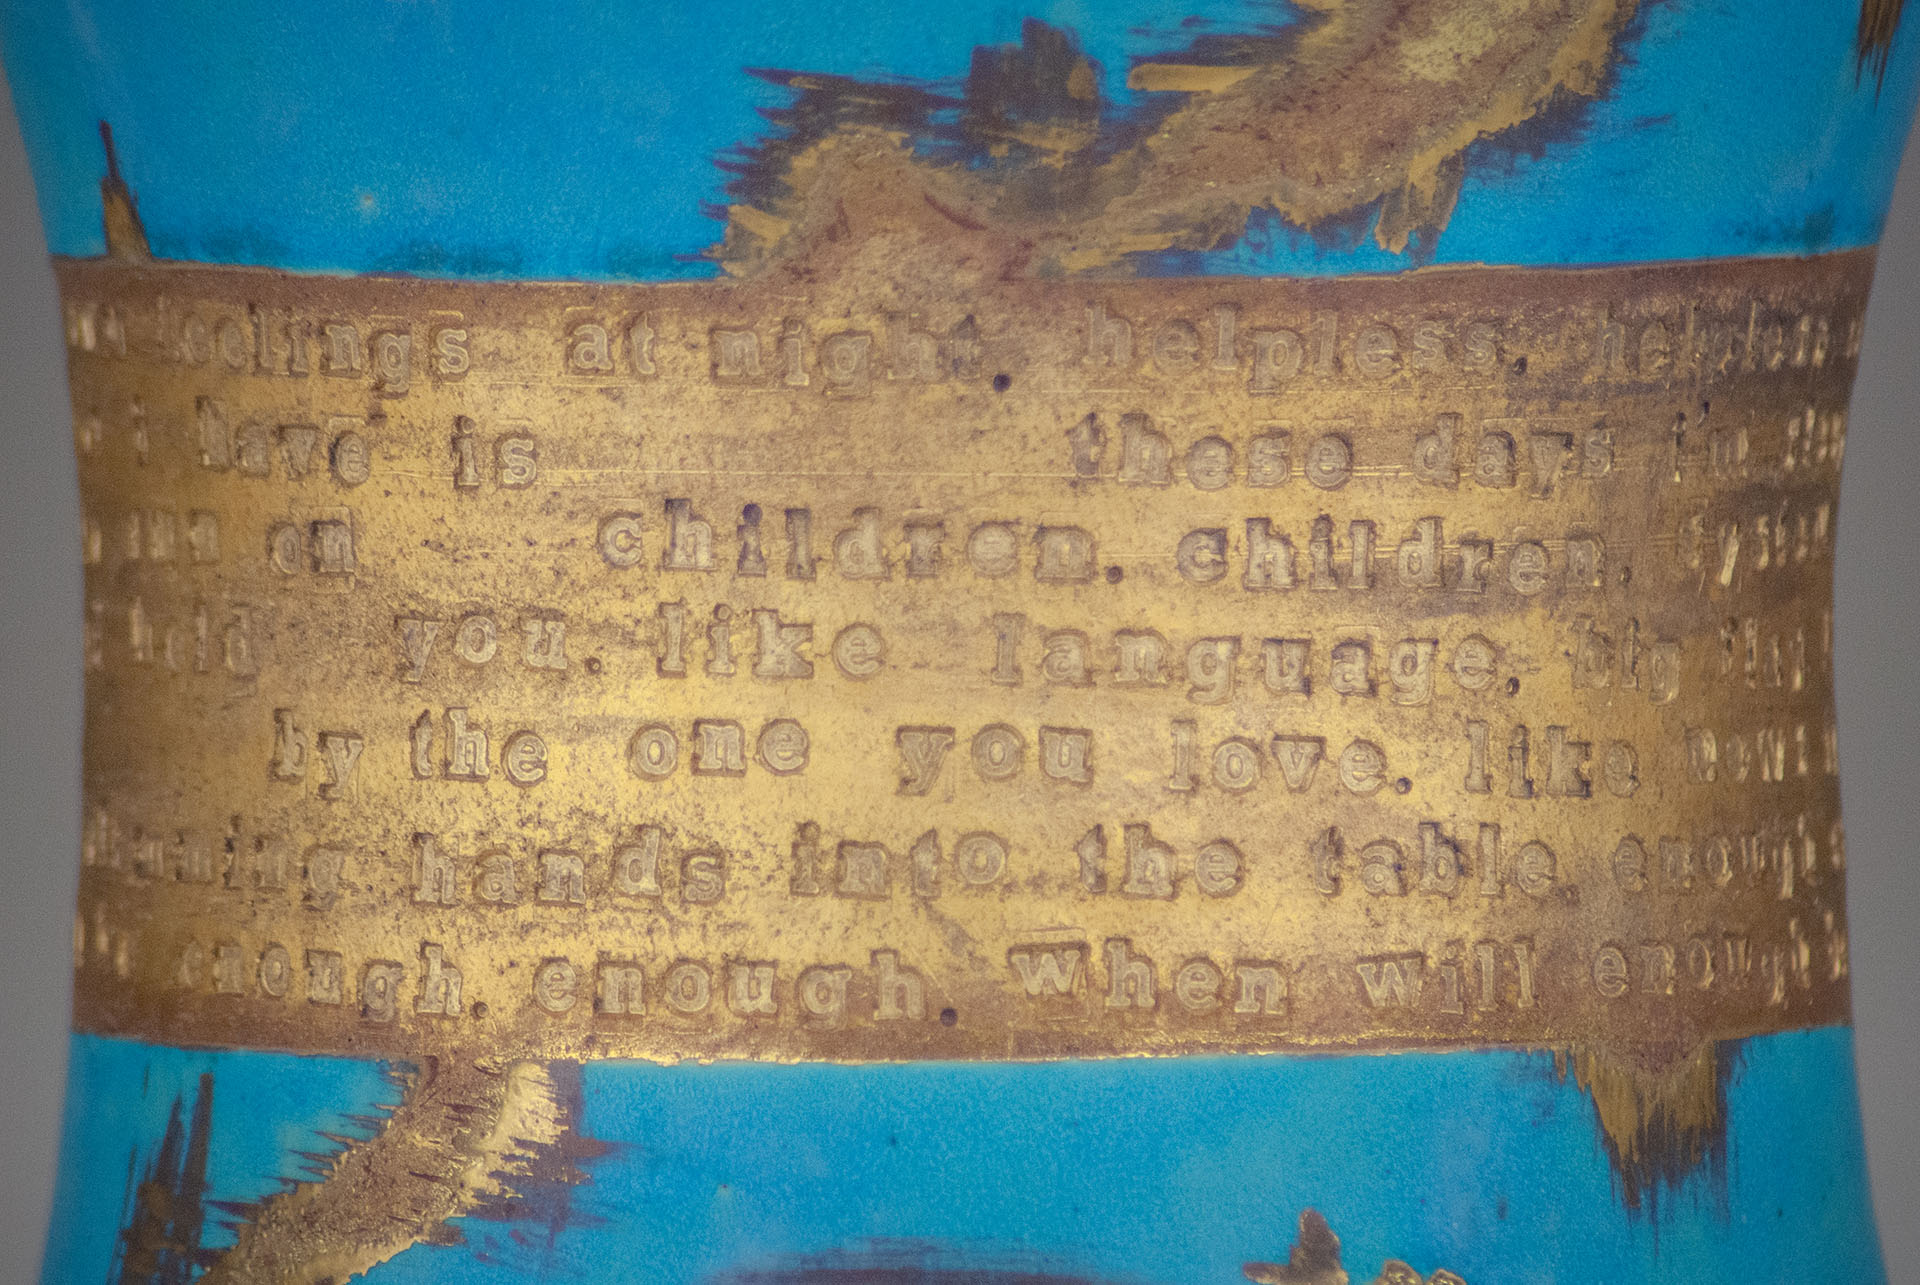 feelings at night. helpless. helpless
i have is these days i'm
on children. children.
held you. like language. big
by the one you love. like
hands into the table enough
enough. enough. when will enough